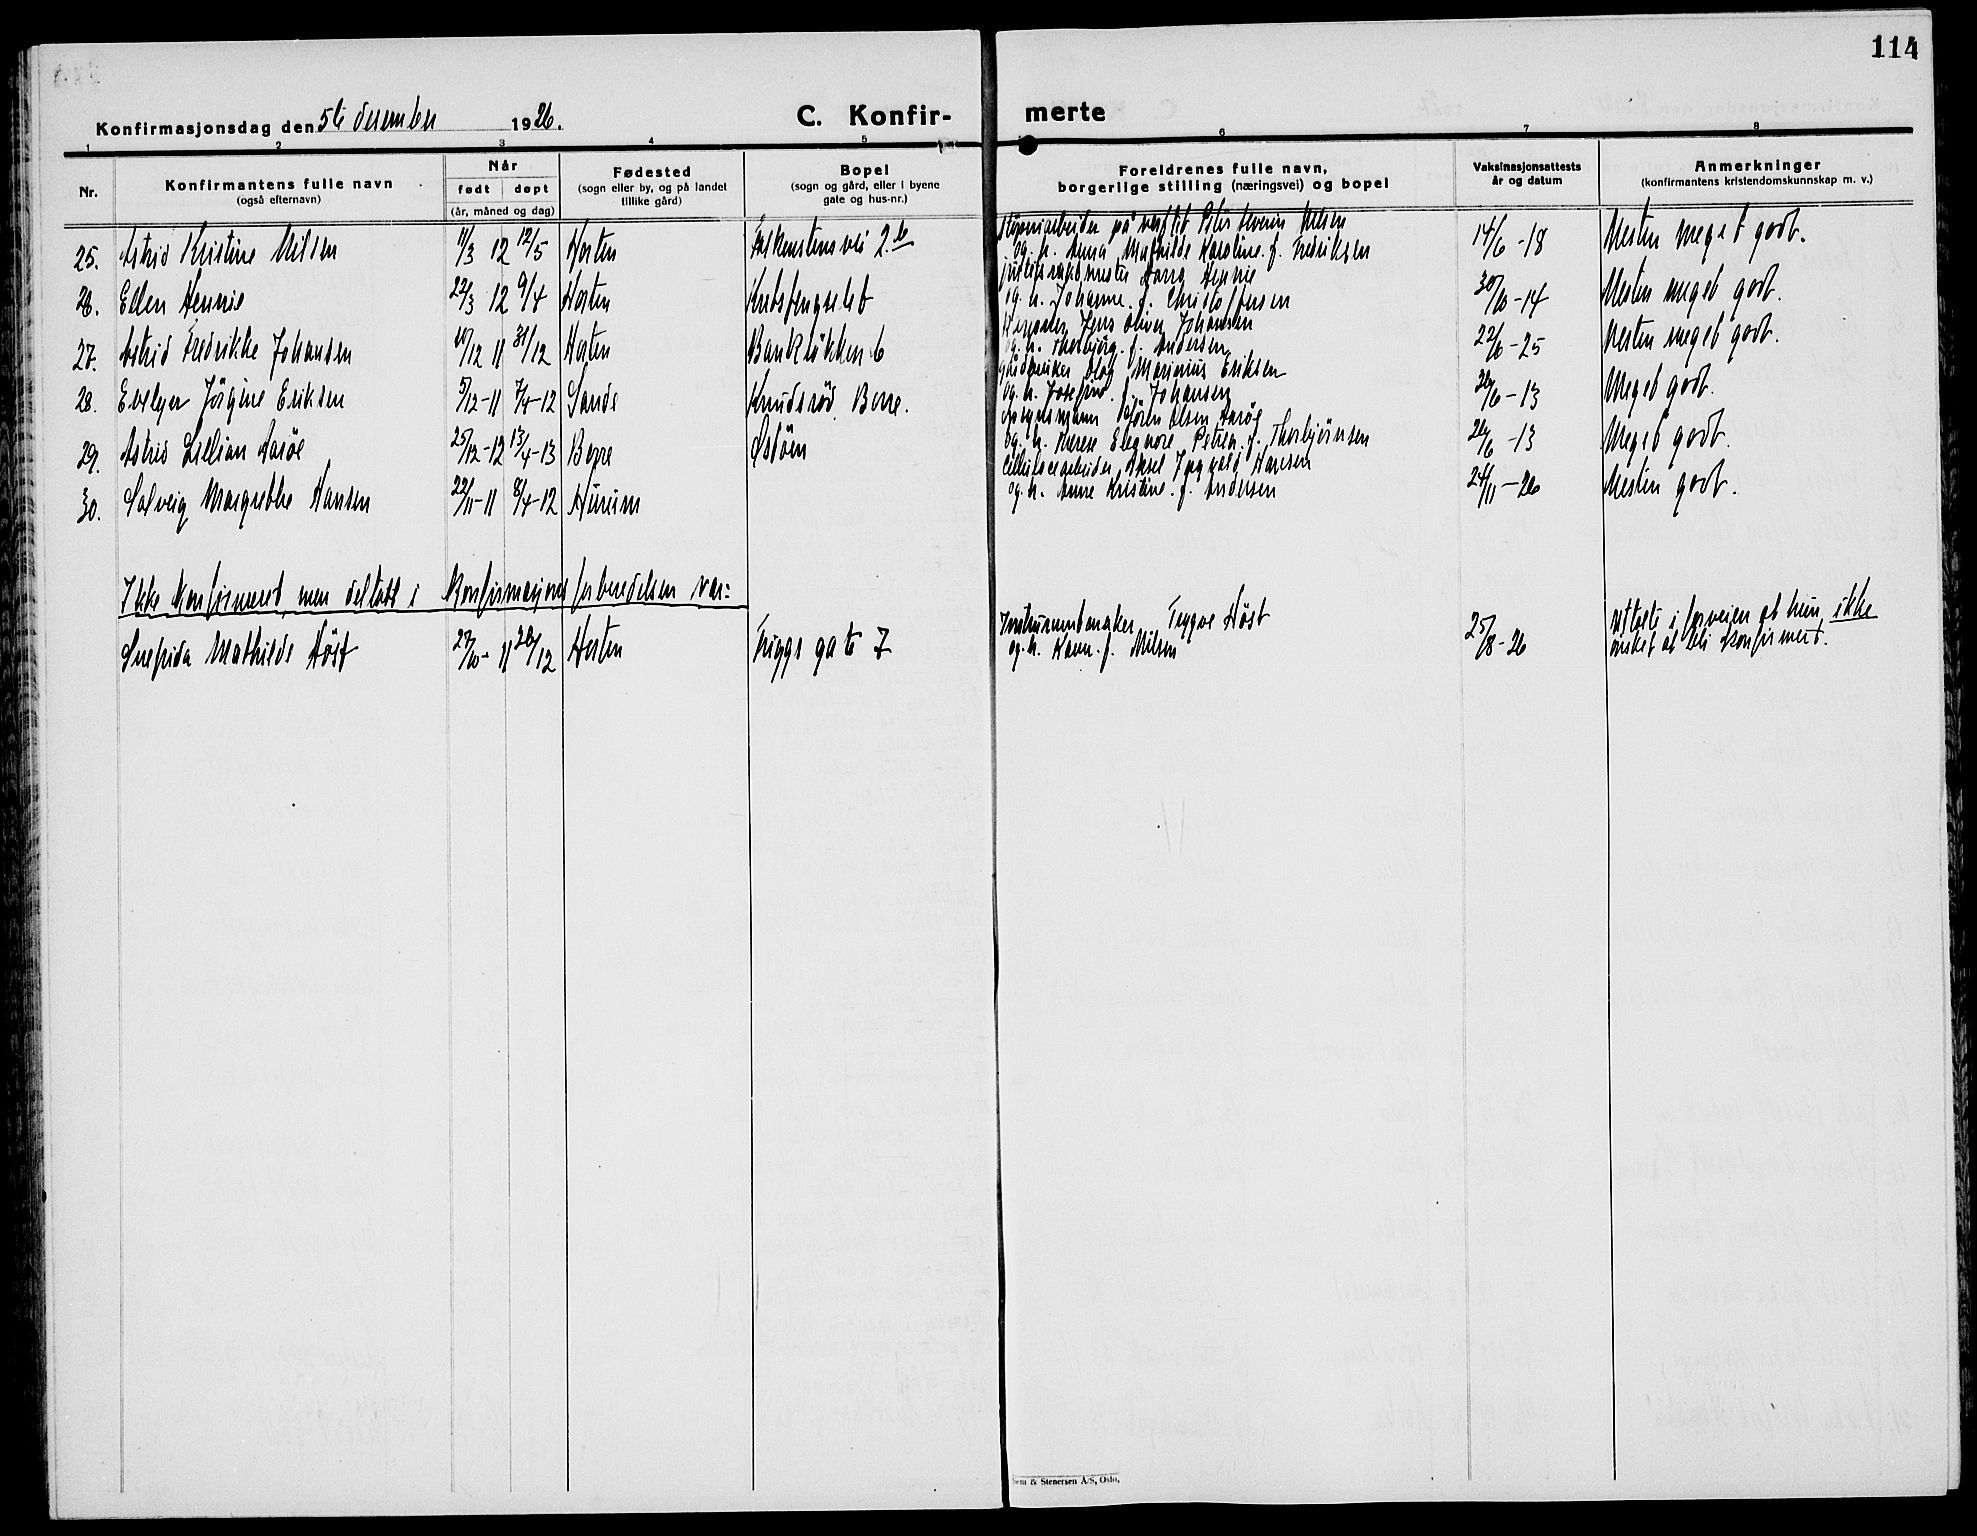 114
Konfirmasjonsdag den 5te desember 1926.
C. Konfir-
merte
1 2 3 4 5 6 7 8
Nr.
Konfirmantens fulle navn
(også efternavn)
Når
født døpt
(år, måned og dag)
Fødested
(sogn eller by, og på landet
tillike gård)
Bopel
(sogn og gård, eller i byene
gate og hus-nr.)
Foreldrenes fulle navn,
borgerlige stilling (næringsvei) og bopel
Vaksinasjonsattests
år og datum
Anmerkninger
(konfirmantens kristendomskunnskap m. v.)
25. Astrid Kristine Nilsen 11/3 12 12/5 Horten Falkenstensvei 2.b
Støperiarbeider på verftet Peter Severin Nilsen
og h. Anna Mathilde Karoline f. Fredriksen
14/6 -18 Nesten meget godt.
26. Ellen Hennie 22/3 12 9/4 Horten Kretsfengselet
Hennie
og h. Johanne f. Christoffersen
30/10 -14 Nesten meget godt.
27. Astrid Fredrikke Johansen 10/12 11 31/12 Horten Bankeløkken 6
Jens Oliver Johansen
og h. Thorbjørg f. Andersen
22/6 -25 Nesten meget godt.
28. Evelyn Jørgine Eriksen 5/12 -11 7/4 -12 Sande Knudsrød, Borre.
Gårdbruker Olaf Marinius Eriksen
og h. Josefine f. Johansen
26/6 -13 Meget godt.
29. Astrid Lillian Aarøe 25/12 -12 13/4 -13 Borre Østøen
Søren Olsen Aarøe
og h. Therese Eleonore Petrea f. Thorbjørnsen
26/6 -13 Meget godt.
30. Solveig Margrethe Hansen 22/11 -11 8/4 -12 Hurum
Cellulosearbeider Aksel Ingvald Hansen
og h. Anne Kristine f. Andersen
24/11 -26 Nesten godt.
Ikke konfirmert, men deltatt i konfirmasjonsforberedelsen var:
Snefrida Mathilde Høst 27/10 - 11 26/12 Horten Friggs gate 7
Instrumentmaker Trygve Høst
og h. Karen f. Nilsen
25/8 -26
i forveien at hun ikke
ønsket at bli konfirmert.
Sem & Stenersen A/S, Oslo.